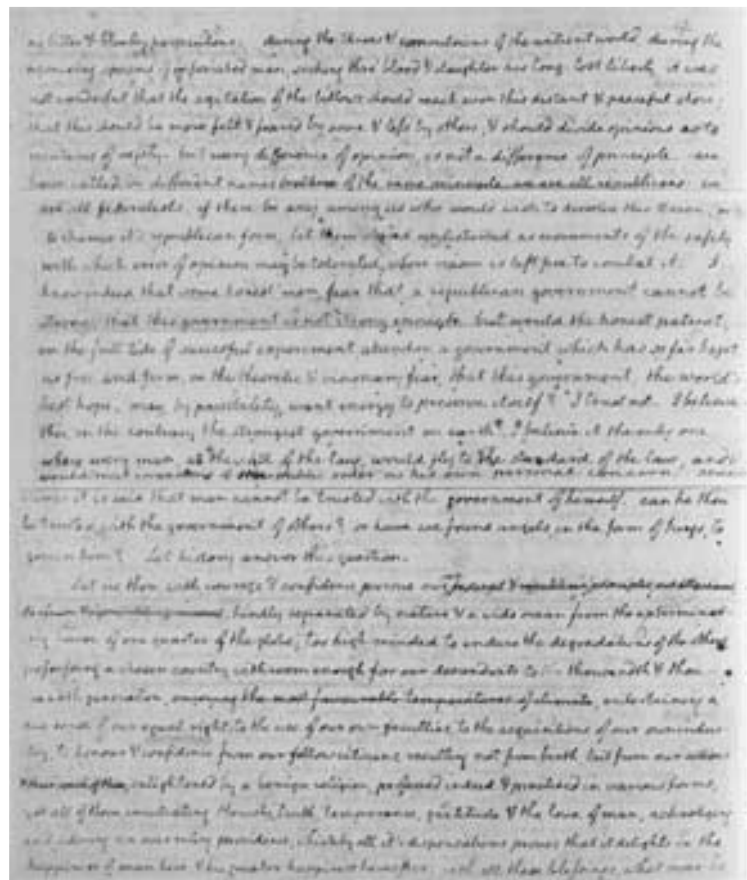 as bitter & bloody persecutions. during the throes & convulsions of the antient world, during the
agonising spasms of infuriated man, seeking thro' blood & slaughter his long lost liberty, it was
not wonderful that the agitation of the billows should reach even this distant & peaceful shore;
that this should be more felt & feared by some & less by others, & should divide opinions as to
measures of safety. but every difference of opinion, is not a difference of principle. we
have called by different names brethren of the same principle. we are all republicans: we
are all federalists. if there be any among us who would wish to dissolve this Union, or
to change it's republican form, let them stand undisturbed as monuments of the safety
with which error of opinion may be tolerated, where reason is left free to combat it. I
know indeed that some honest men fear that a republican government cannot be
strong; that this government is not strong enough. but would the honest patriot,
in the full tide of successful experiment abandon a government which has so far kept
us free and firm, on the theoretic & visionary fear, that this government, the world's
best hope, may, by possibility, want energy to preserve itself? I trust not. I believe
this, on the contrary, the strongest government on earth. I believe it the only one
where every man, at the call of the law, would fly to the standard of the law, and
would meet invasions of the public order as his own personal concern. some
times it is said that man cannot be trusted with the government of himself. can he then
be trusted with the government of others? or have we found angels, in the form of kings, to
govern him? Let history answer this question.
Let us then with courage & confidence pursue our federal & republican principles
kindly separated by nature & a wide ocean from the exterminat-
ing havoc of one quarter of the globe; too high minded to endure the degradations of the others,
possessing a chosen country, with room enough for our descendants to the thousandth & thou-
sandth generation, enjoying the most favourable temperatures of climate, entertaining a
due sense of our equal right to the use of our own faculties, to the acquisitions of our own indus-
try, to honour & confidence from our fellow citizens, resulting not from birth, but from our actions
& their sense of them, enlightened by a benign religion, professed indeed & practised in various forms,
yet all of them inculcating honesty, truth, temperance, gratitude & the love of man, acknoleging
and adoring an overruling providence, which by all it's dispensations proves that it delights in the
happiness of man here & his greater happiness hereafter, with all these blessings, what more is